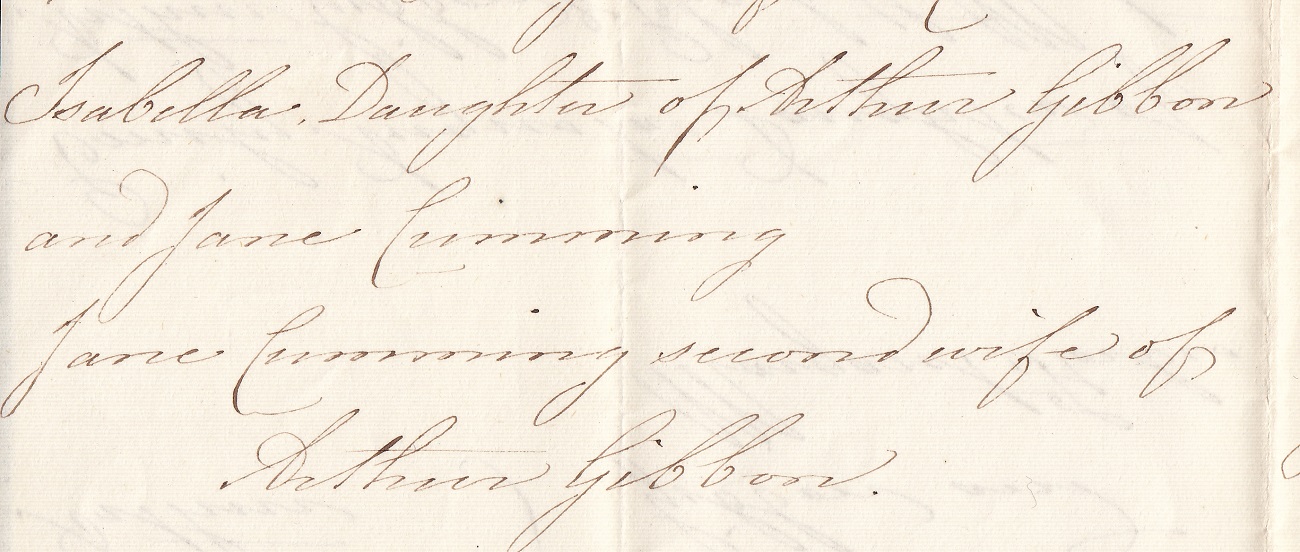 Isabella, Daughter of Arthur Gibbon
and Jane Cumming
Jane Cumming second wife of
Arthur Gibbon.